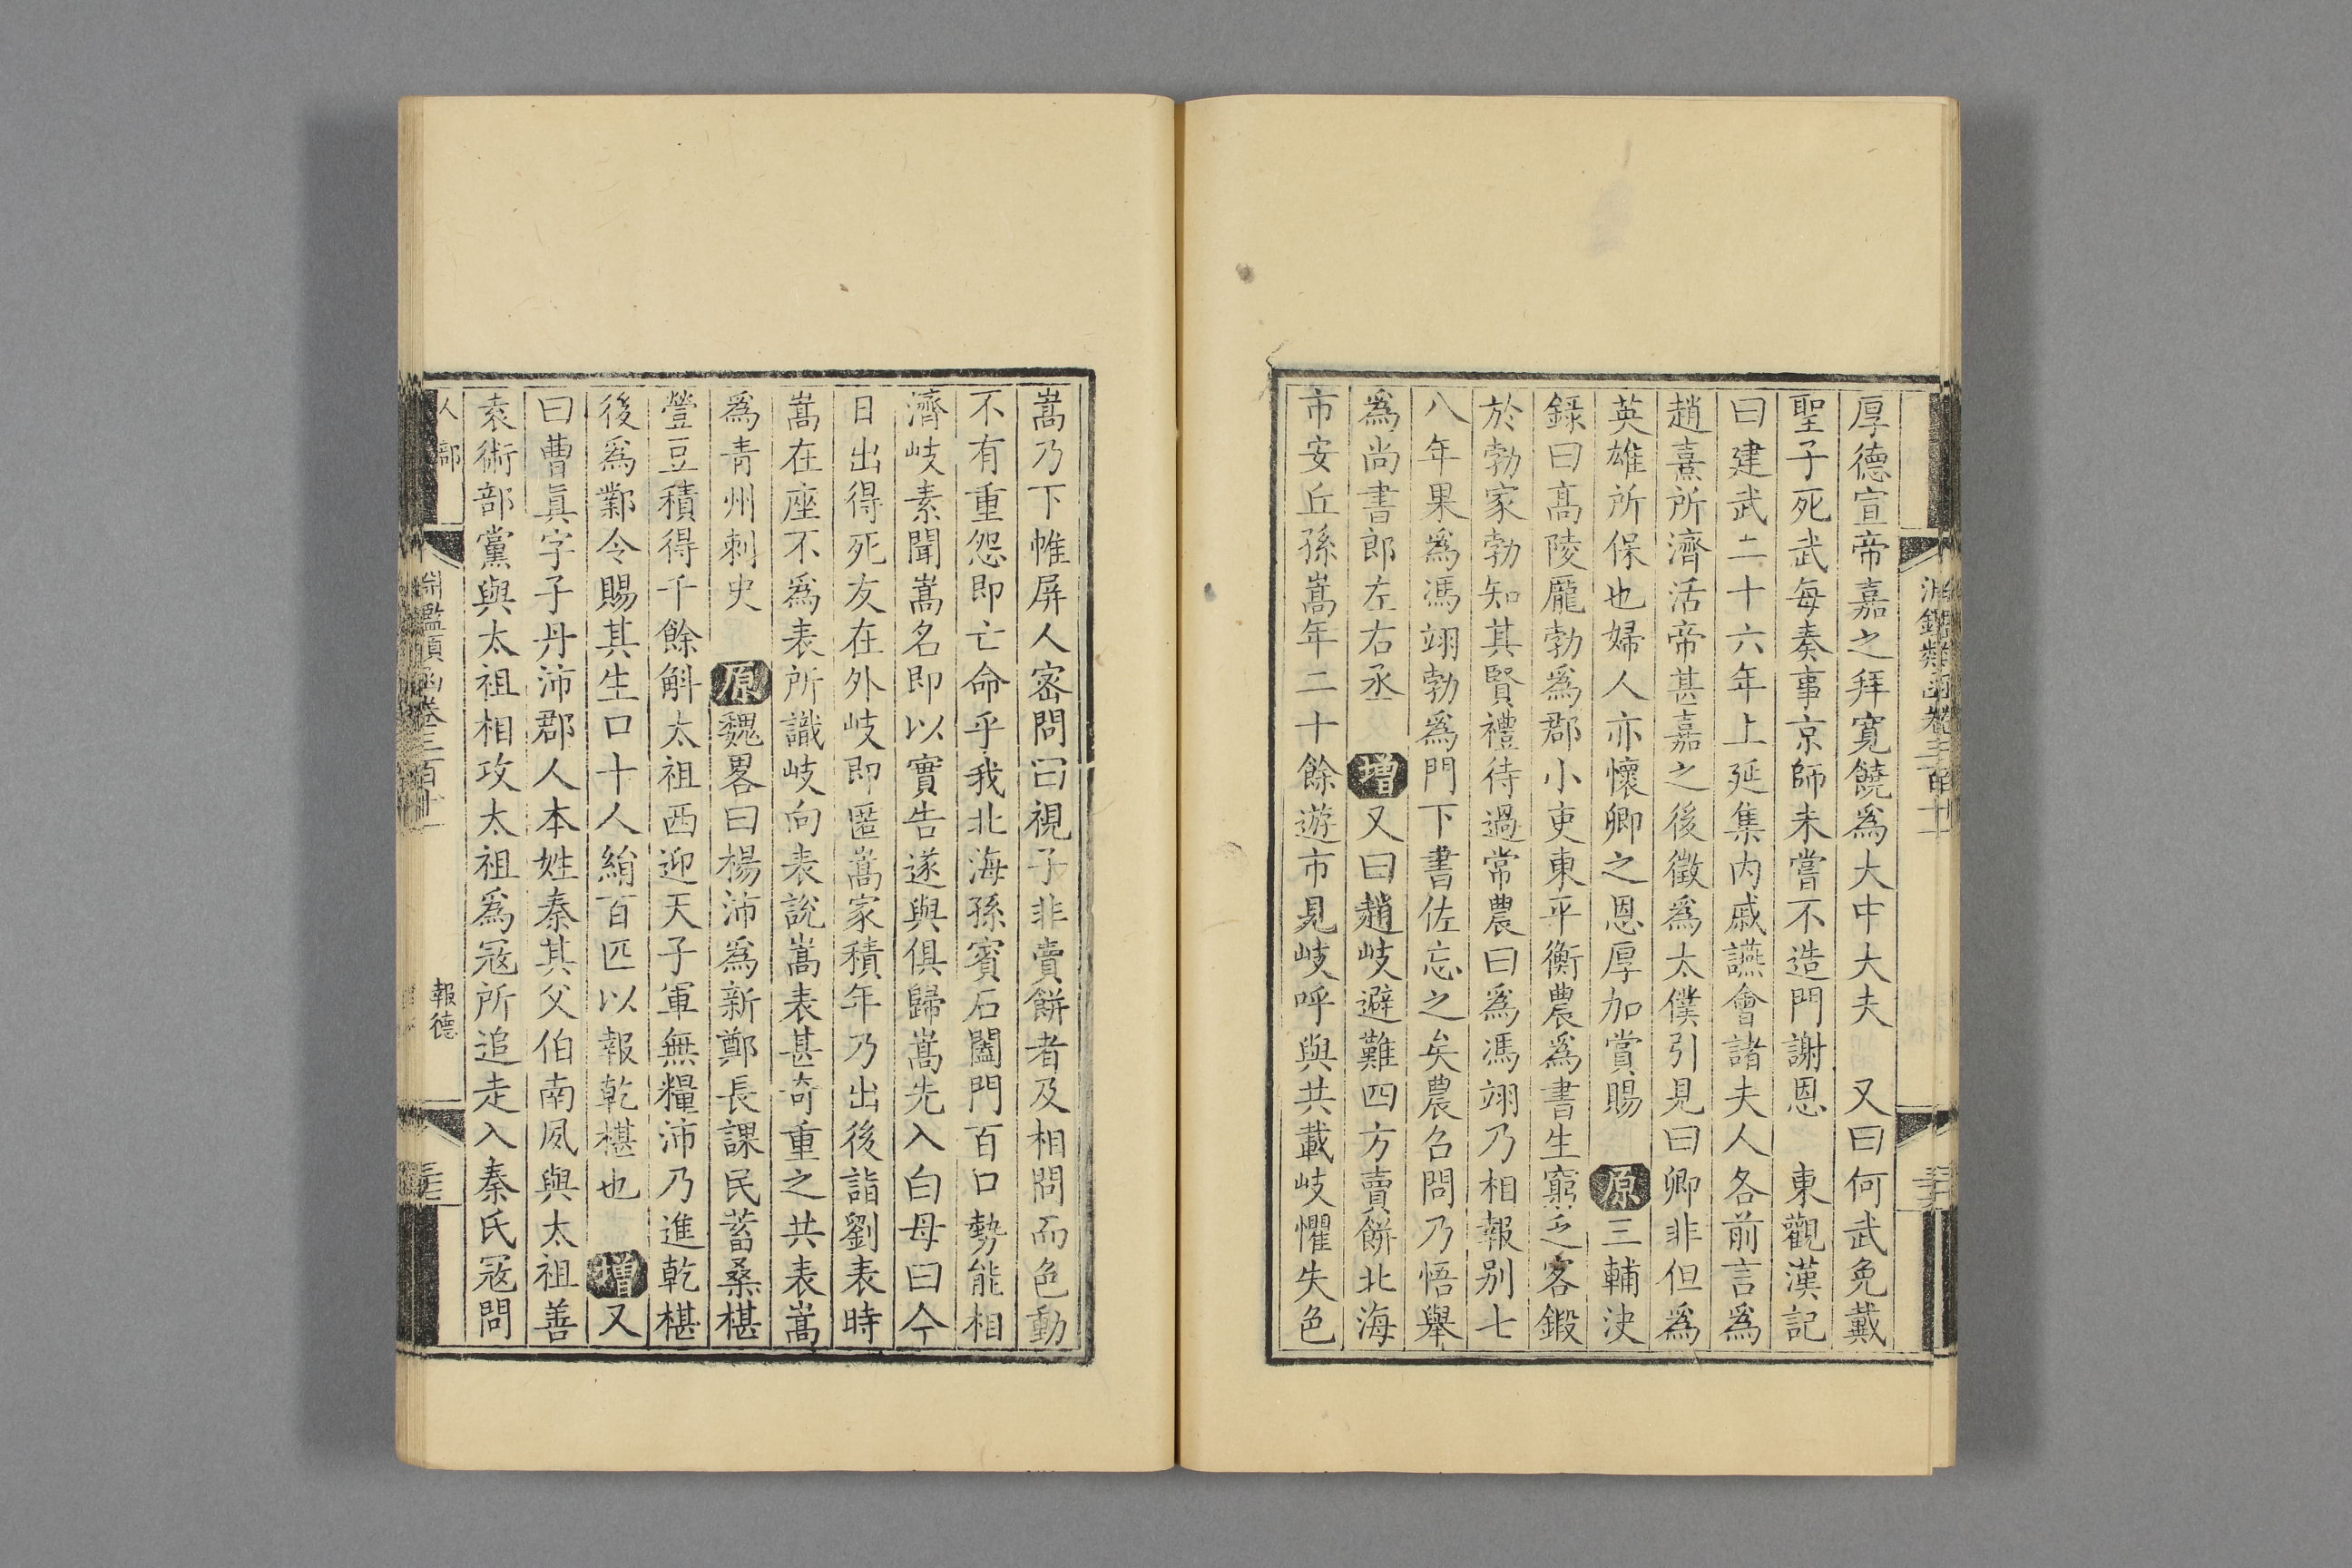 厚德宣帝嘉之拜寬饒爲大中大夫　又曰何武免戴
聖子死武每奏事京師未嘗不造門謝恩　東觀漢記
曰建武二十六年上延集内戚讌會諸夫人各前言爲
趙憙所濟活帝甚嘉之後徵爲太僕引見曰卿非但爲
英雄所保也婦人亦懷卿之恩厚加賞賜　原三輔決
錄曰高陵龐勃爲郡小吏東平衡農爲書生窮乏客鍛
於勃家勃知其賢禮待過常農曰爲馮翊乃相報别七
八年果爲馮翊勃爲門下書佐忘之矣農召問乃悟舉
爲尚書郎左右丞　增又曰趙岐避難四方賣餅北海
市安丘孫嵩年二十餘遊市見岐呼與共載岐懼失色
嵩乃下帷屏人密問曰視子非賣餅者及相問而色動
不有重怨即亡命乎我北海孫賓石闔門百口勢能相
濟岐素聞嵩名即以實告遂與俱歸嵩先入白母曰今
日出得死友在外岐即匿嵩家積年乃出後詣劉表時
嵩在座不爲表所識岐向表說嵩表甚奇重之共表嵩
爲青州刺史　原魏畧曰楊沛爲新鄭長課民蓄桑椹
䝁豆積得千餘斛太祖西迎天子軍無糧沛乃進乾椹
後爲鄴令賜其生口十人絹百匹以報乾椹也　增又
曰曹真字子丹沛郡人本姓秦其父伯南夙與太祖善
袁術部黨與太祖相攻太祖爲冦所追走入秦氏冦問
人部
報德